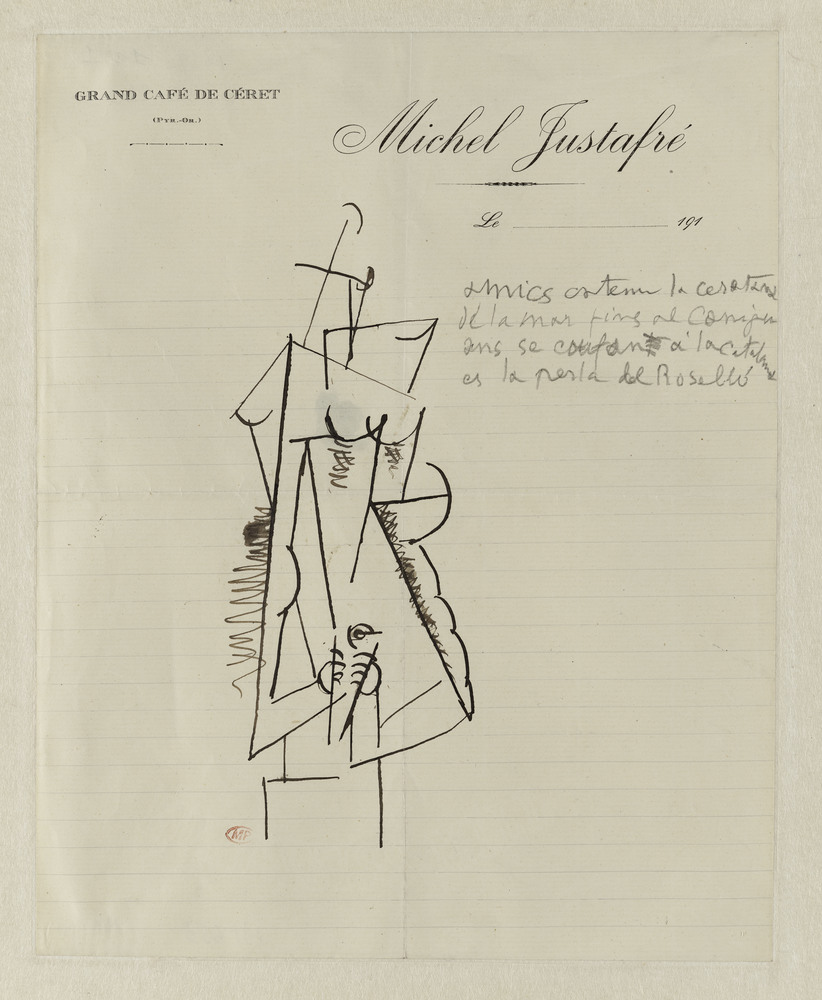 GRAND CAFÉ DE CÉRET
(PYR.-OR.)
Michel Justafré
Le 191
amics la
de la mar fins al
ans se a la
es la perla del Roselló
MP